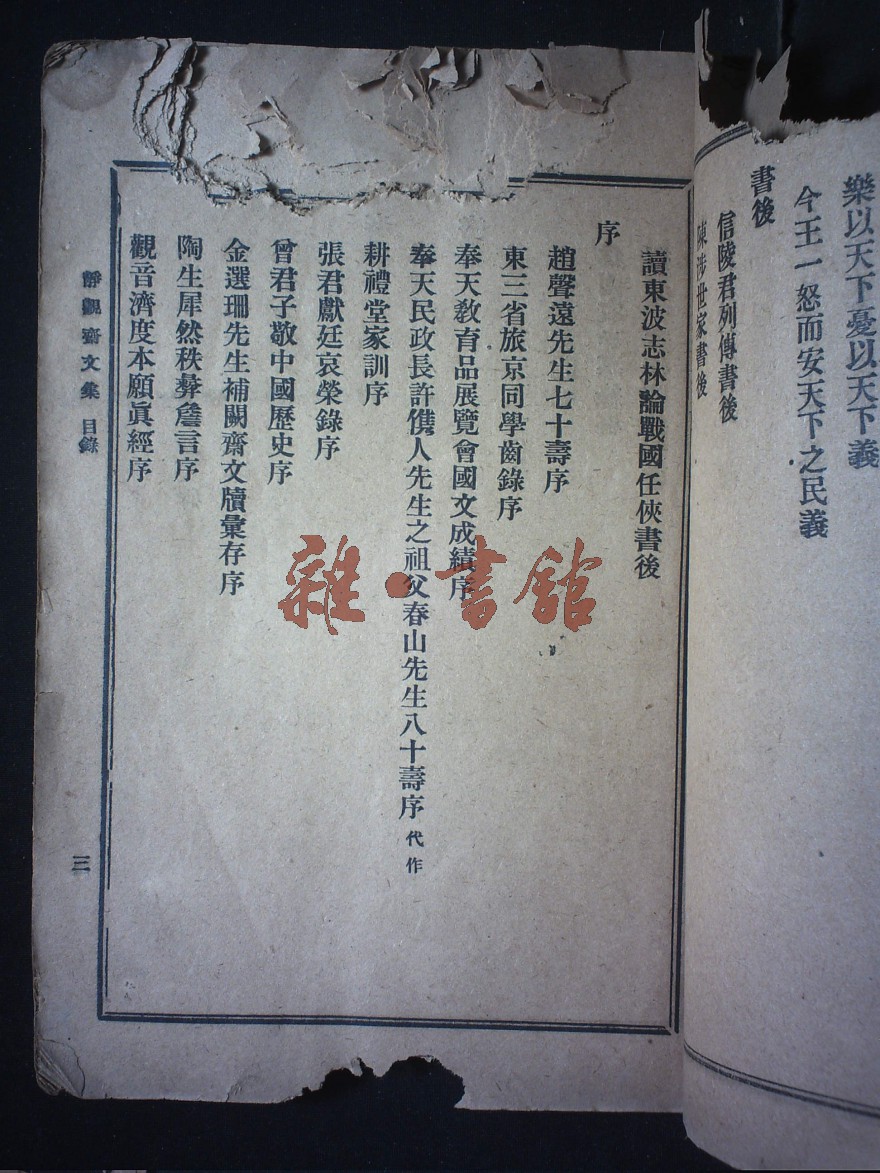 樂以天下憂以天下義
今王一怒而安天下之民義
書後
信陵君列傳書後
陳涉世家書後
讀東波志林論戰國任俠書後
序
趙聲遠先生七十壽序
東三省旅京同學齒錄序
奉天教育品展覽會國文成績序
奉天民政長許儁人先生之祖父春山先生八十壽序 代作
耕禮堂家訓序
張君獻廷哀榮錄序
曾君子敬中國歷史序
金選珊先生補闕齋文牘彙存序
陶生犀然秩彝詹言序
觀音濟度本願眞經序
靜觀齋文集 目錄
三
雜·書館